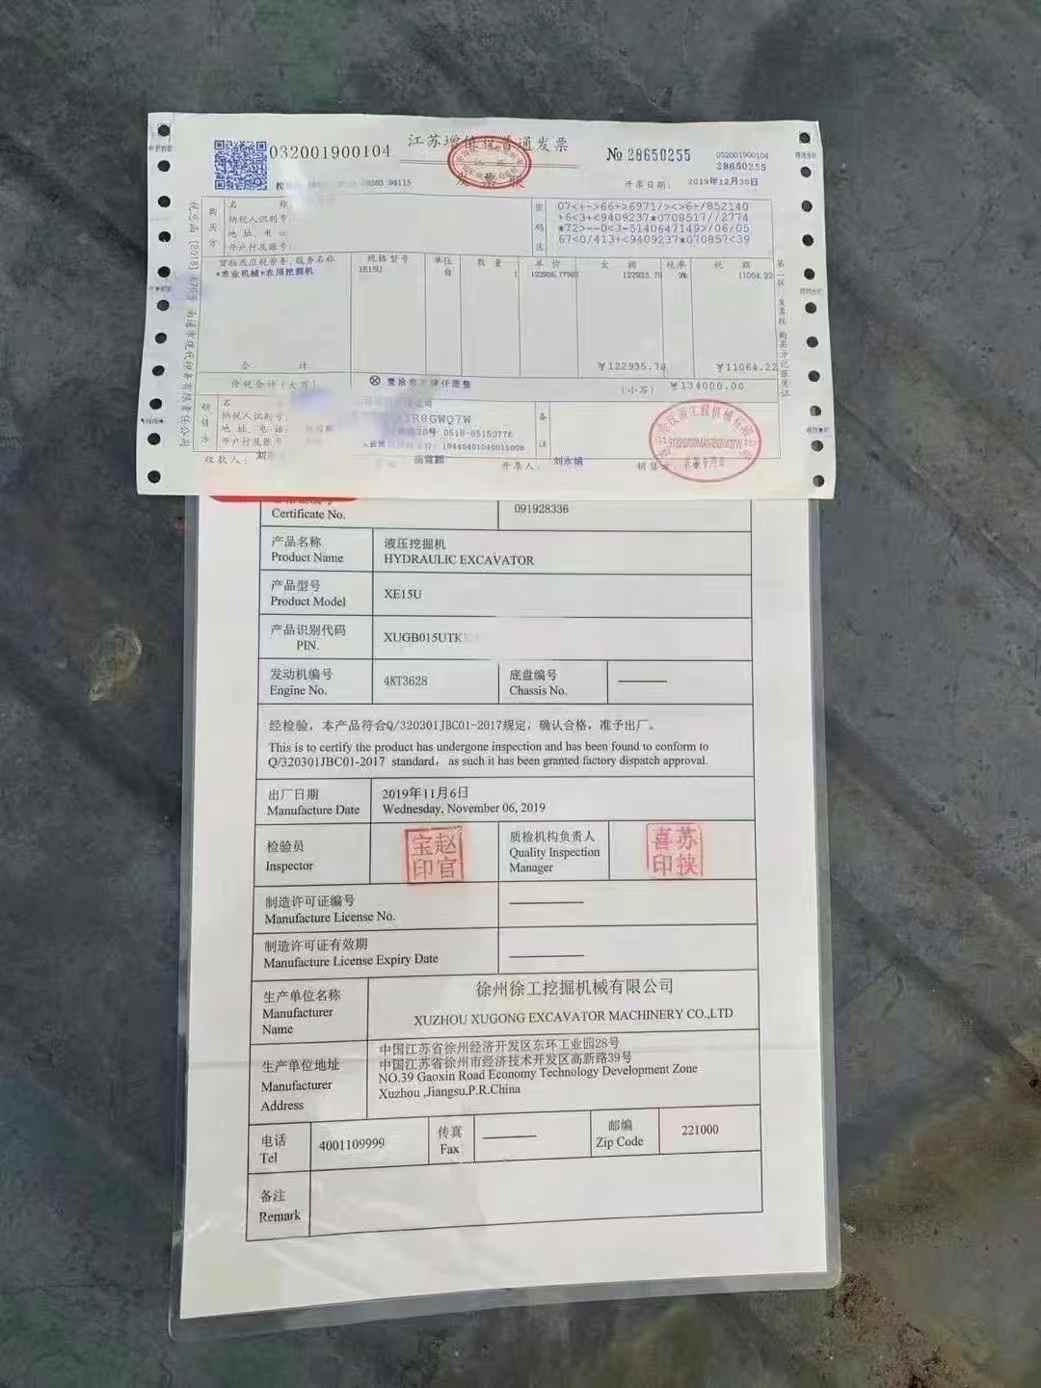 032001900104
江苏增值税普通发票
№ 28650255
032001900104
28650255
开票日期: 2019年12月30日
购买方
名 称
纳税人识别号:
地 址、电 话:
开户行及账号:
07<+->66+>6971/><>6+/852140
+6<3+<9409237*0708517//2774
*72>--0<3-5140647149>/06/05
67<0/413+<9409237*070857<39
货物或应税劳务、服务名称 规格型号 单位 数 量 单 价 金 额 税率 税 额
*农业机械*农用挖掘机 XE15U 台 1 11064.22
合 计 ￥11064.22
价税合计(大写) (小写) ￥134000.00
销售方
名
纳税人识别号:
地 址、电 话: 0516-85153776
开户行及账号
备注
收款人: 开票人: 刘永娟 销售
Certificate No. 091928336
产品名称 液压挖掘机
Product Name HYDRAULIC EXCAVATOR
产品型号
Product Model XE15U
产品识别代码
PIN. XUGB015UTK
发动机编号
Engine No. 4KT3628
底盘编号
Chassis No.
经检验，本产品符合Q/320301JBC01-2017规定，确认合格，准予出厂。
This is to certify the product has undergone inspection and has been found to conform to
Q/320301JBC01-2017 standard，as such it has been granted factory dispatch approval.
出厂日期 2019年11月6日
Manufacture Date Wednesday, November 06, 2019
检验员
Inspector
宝赵
印官
质检机构负责人
Quality Inspection
Manager
喜苏
印侠
制造许可证编号
Manufacture License No.
制造许可证有效期
Manufacture License Expiry Date
生产单位名称
Manufacturer
Name
徐州徐工挖掘机械有限公司
XUZHOU XUGONG EXCAVATOR MACHINERY CO.,LTD
生产单位地址
Manufacturer
Address
中国江苏省徐州经济开发区东环工业园28号
中国江苏省徐州市经济技术开发区高新路39号
NO.39 Gaoxin Road Economy Technology Development Zone
Xuzhou ,Jiangsu,P.R.China
电话
Tel
4001109999
传真
Fax
邮编
Zip Code
221000
备注
Remark